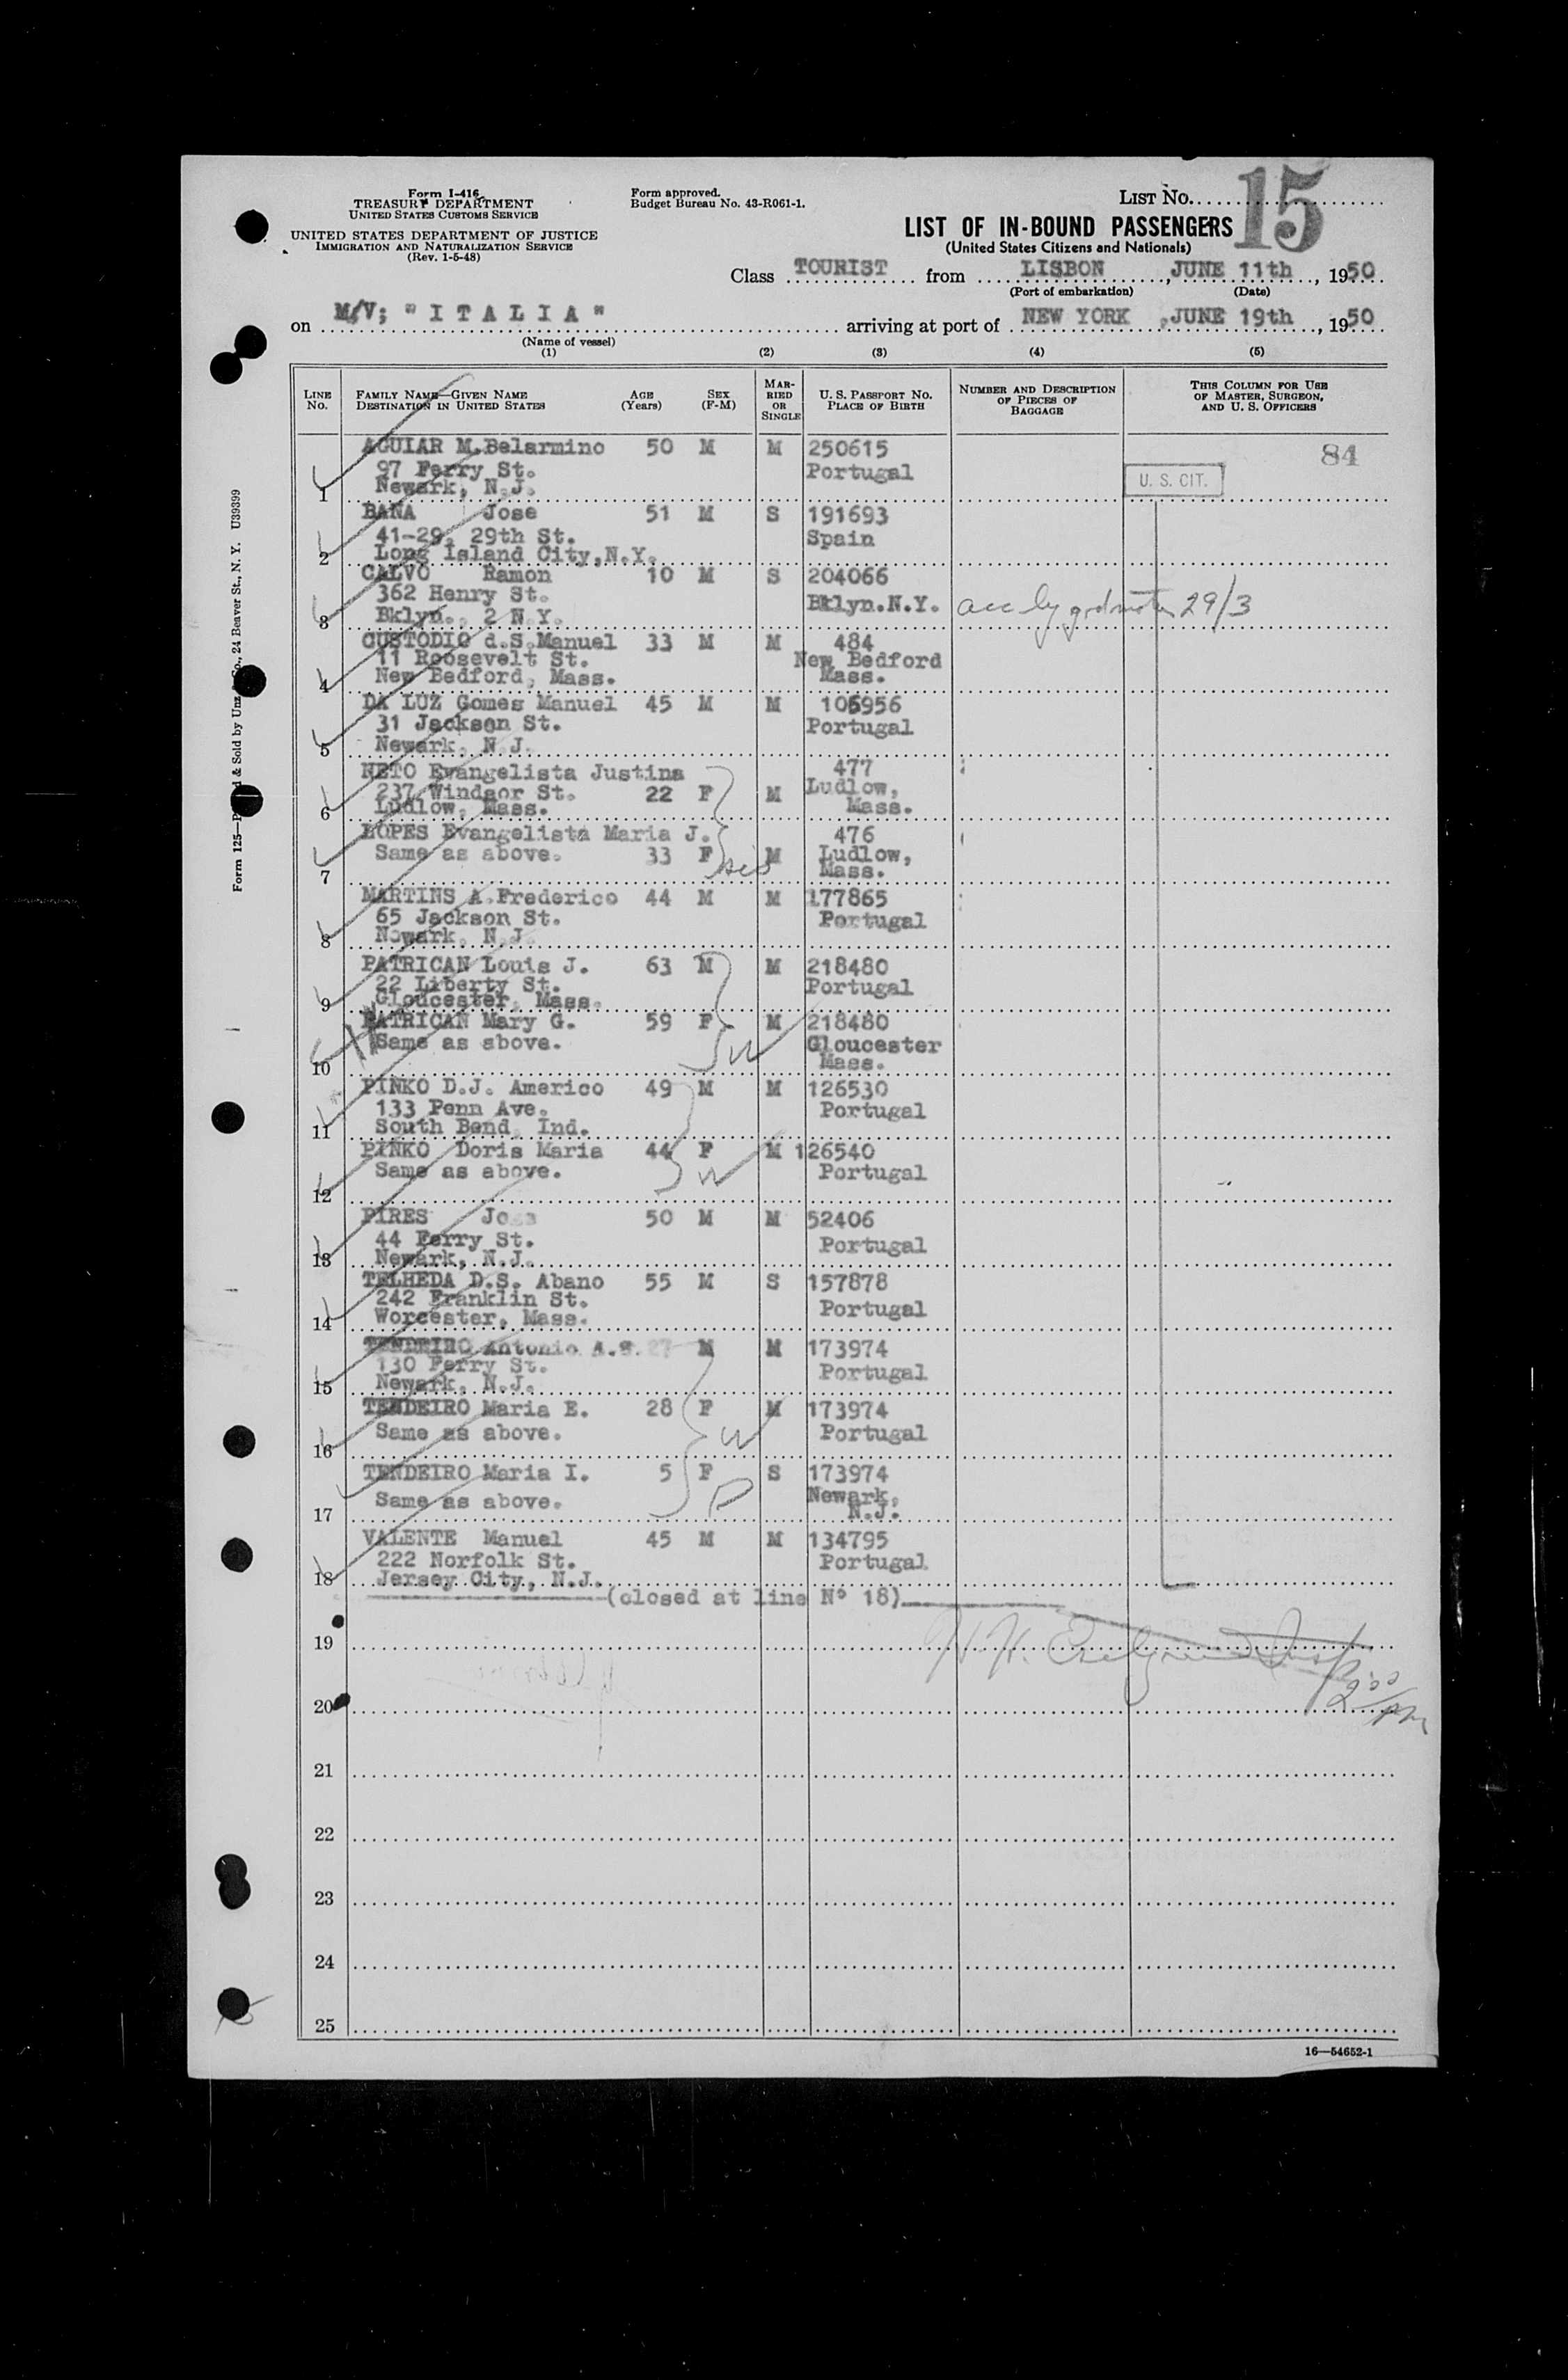 Form I-416
TREASURY DEPARTMENT
UNITED STATES CUSTOMS SERVICE
UNITED STATES DEPARTMENT OF JUSTICE
IMMIGRATION AND NATURALIZATION SERVICE
(Rev. 1-5-48)
Form approved.
Budget Bureau No. 43-R061-1.
LIST NO. 15
LIST OF IN-BOUND PASSENGERS
(United States Citizens and Nationals)
Class TOURIST from LISBON, JUNE 11th, 1950
(Port of embarkation) (Date)
on M/V; "ITALIA" arriving at port of NEW YORK, JUNE 19th, 1950
(Name of vessel)
(1) (2) (3) (4) (5)
LINE No. FAMILY NAME—GIVEN NAME DESTINATION IN UNITED STATES AGE (Years) SEX (F-M) MARRIED OR SINGLE U. S. PASSPORT NO. PLACE OF BIRTH NUMBER AND DESCRIPTION OF PIECES OF BAGGAGE THIS COLUMN FOR USE OF MASTER, SURGEON, AND U. S. OFFICERS
AGUIAR M. Belarmino 50 M M 250615 84
97 Ferry St. Portugal
1 Newark, N.J. U. S. CIT.
BANA Jose 51 M S 191693
41-29, 29th St. Spain
2 Long Island City, N.Y.
CALVO Ramon 10 M S 204066
362 Henry St. Bklyn. N.Y. acc by 29/3
3 Bklyn., 2 N.Y.
CUSTODIO d.S. Manuel 33 M M 484
11 Roosevelt St. New Bedford
4 New Bedford, Mass. Mass.
DA LUZ Gomes Manuel 45 M M 106956
31 Jackson St. Portugal
5 Newark, N.J.
NETO Evangelista Justina 477
237 Windsor St. 22 F M Ludlow,
6 Ludlow, Mass. Mass.
LOPES Evangelista Maria J. 476
Same as above. 33 F sis M Ludlow,
7 Mass.
MARTINS A. Frederico 44 M M 177865
65 Jackson St. Portugal
8 Newark, N.J.
PATRICAN Louis J. 63 M M 218480
22 Liberty St. Portugal
9 Gloucester, Mass.
PATRICAN Mary G. 59 F M 218480
Same as above. W Gloucester
10 Mass.
PINKO D.J. Americo 49 M M 126530
133 Penn Ave. Portugal
11 South Bend, Ind.
PINKO Doris Maria 44 F M 126540
Same as above. W Portugal
12
PIRES 50 M M 52406
44 Ferry St. Portugal
13 Newark, N.J.
TELHEDA D.S. Abano 55 M S 157878
242 Franklin St. Portugal
14 Worcester, Mass.
TENDEIRO Antonio A.S. 27 M M 173974
130 Ferry St. Portugal
15 Newark, N.J.
TENDEIRO Maria E. 28 F M 173974
Same as above. W Portugal
16
TENDEIRO Maria I. 5 F S 173974
Same as above. D Newark,
17 N.J.
VALENTE Manuel 45 M M 134795
222 Norfolk St. Portugal
18 Jersey City, N.J.
(closed at line Nº 18)
19
20 2 00 PM
21
22
23
24
25
16—54652-1